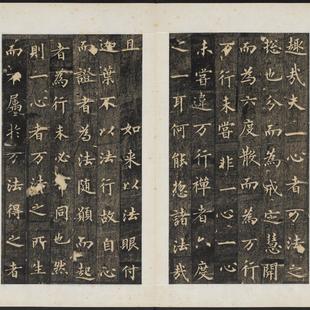 趣哉夫一心者万法之
揔也分而為戒定慧開
而為六度散而為万行
万行未嘗非一心一心
未嘗違万行禪者六度
之一耳何能揔諸法哉
且 如来以法眼付
迦葉不以法行故自心
而證者為法隨願而起
者為行未必同也然
則一心者万法之所生
而属於万法得之者